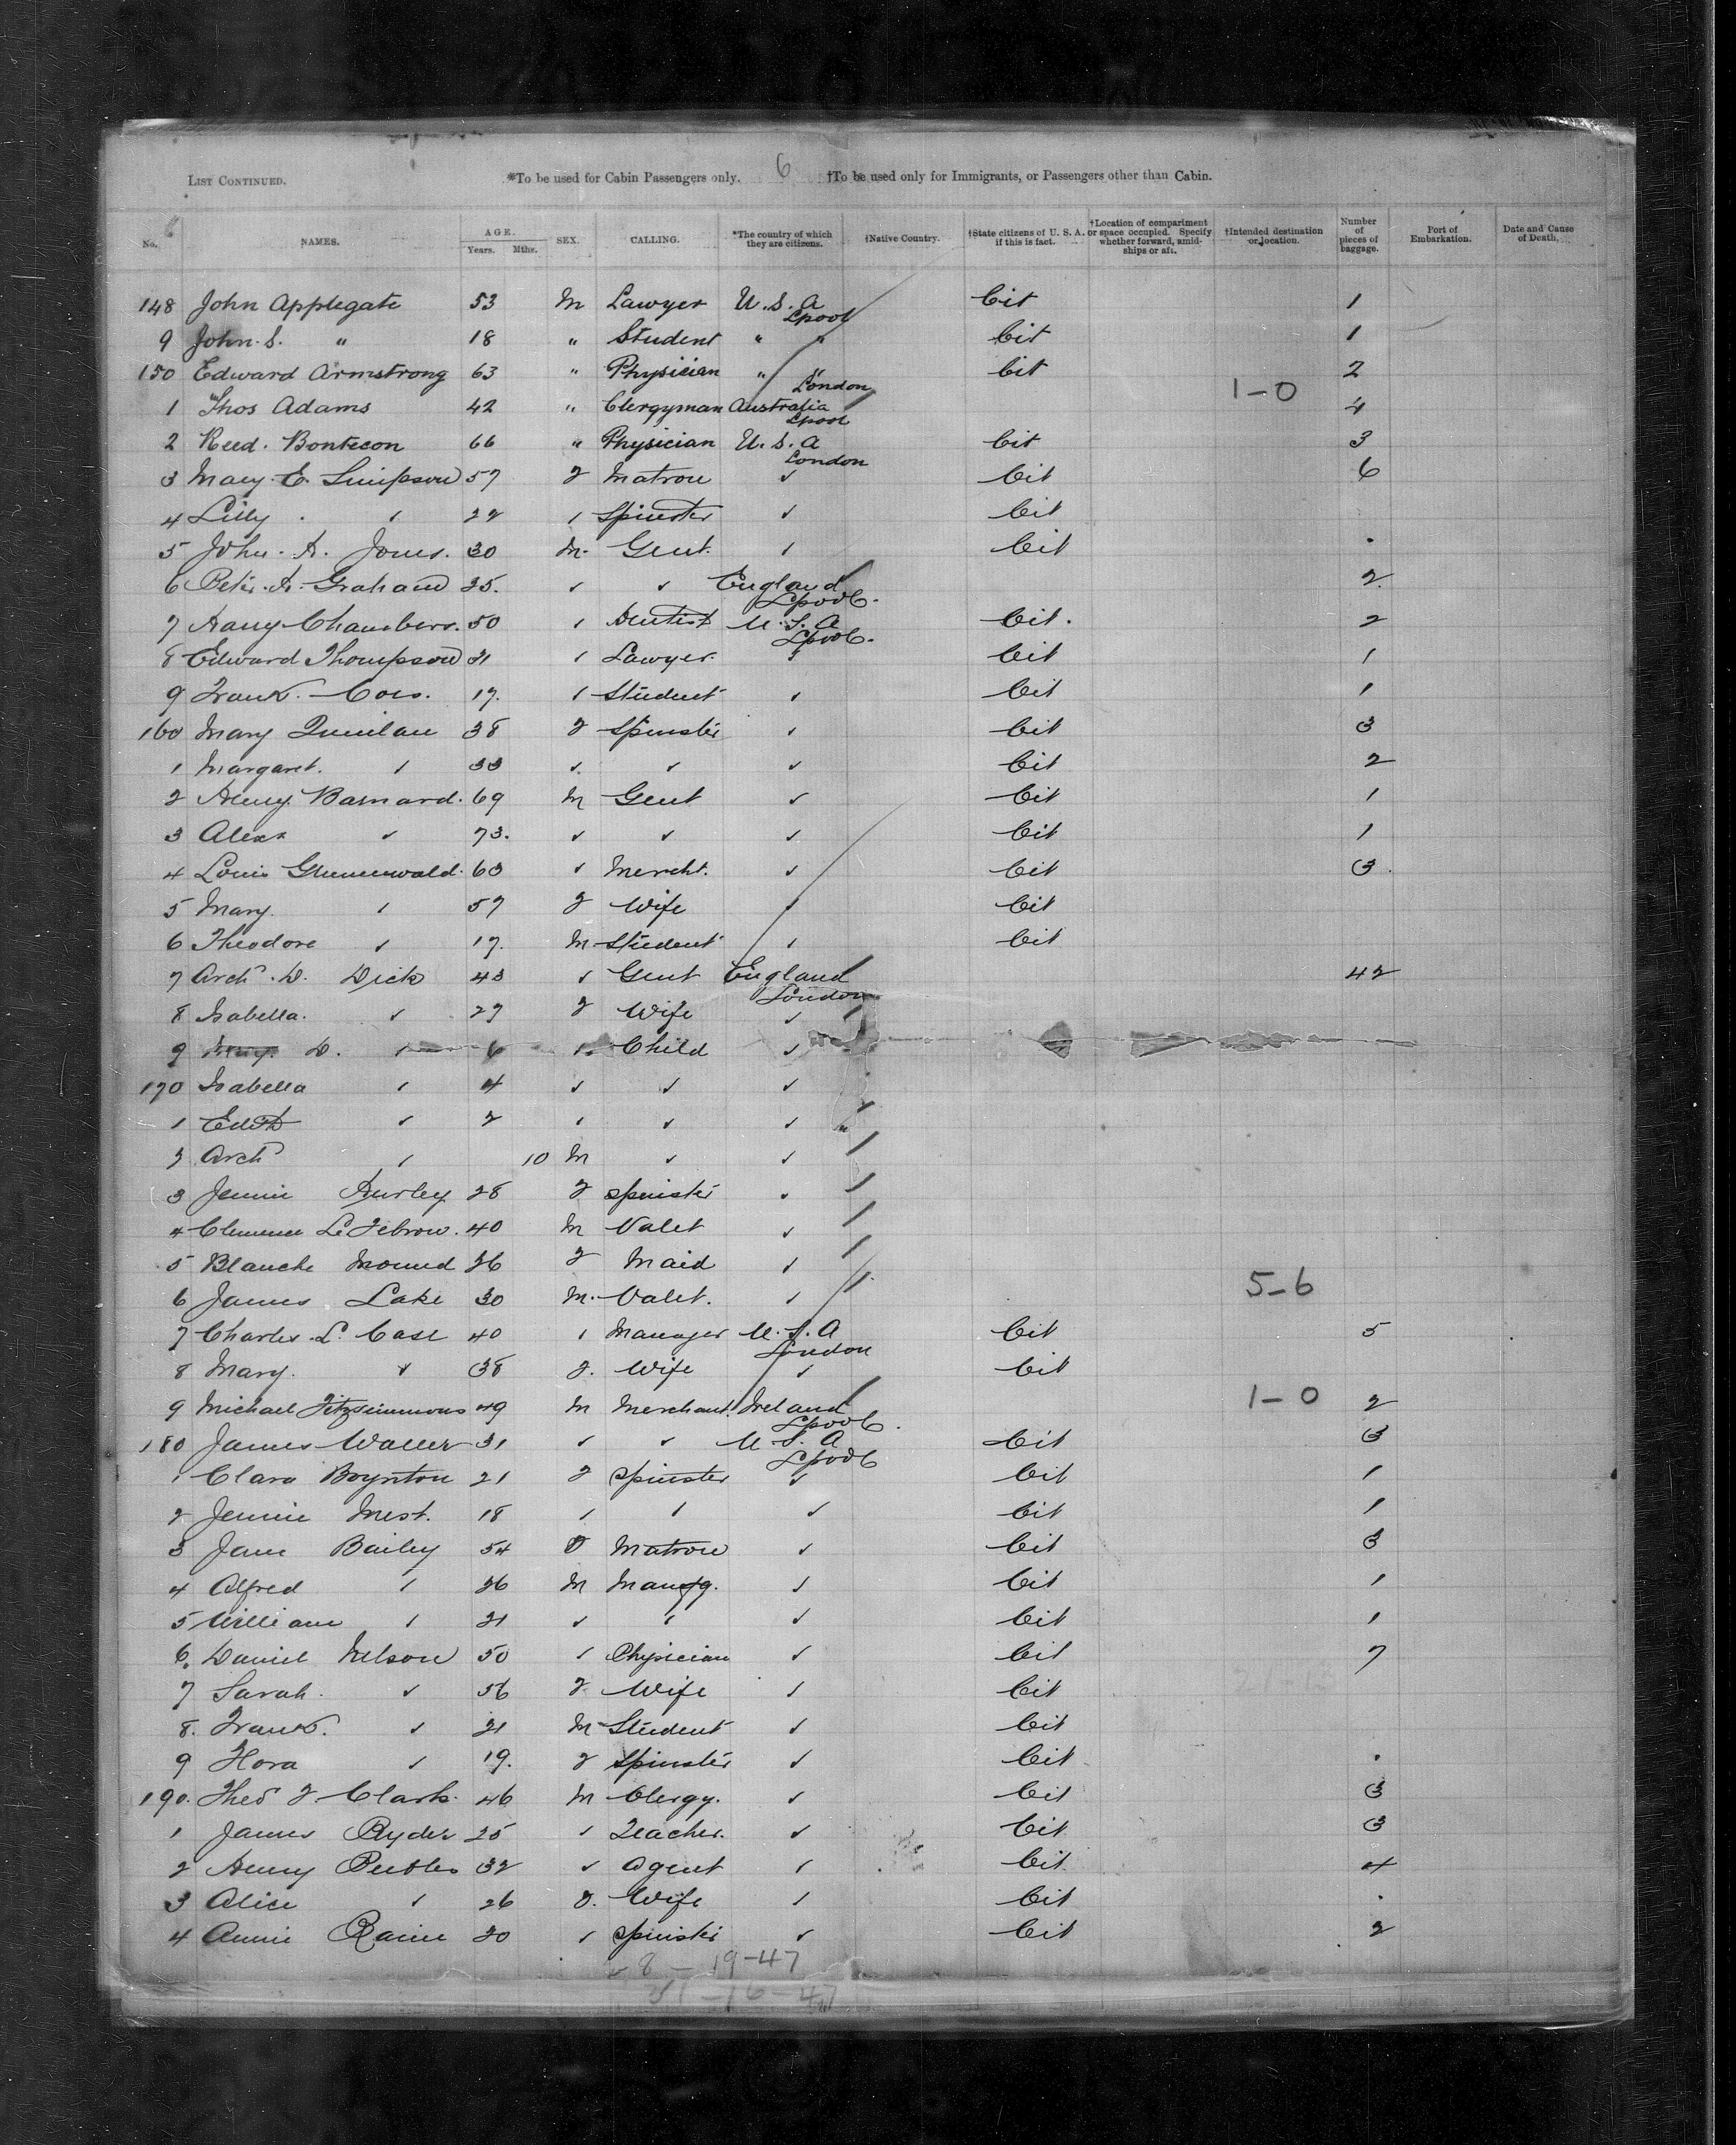 6
LIST CONTINUED. *To be used for Cabin Passengers only. †To be used only for Immigrants, or Passengers other than Cabin.
No. NAMES. AGE. Years. Mths. SEX. CALLING. *The country of which they are citizens. †Native Country. †State citizens of U. S. A. if this is fact. †Location of compartment or space occupied. Specify whether forward, amidships or aft. †Intended destination or location. Number of pieces of baggage. Port of Embarkation. Date and Cause of Death.
148 John Applegate 53 M Lawyer U.S.A Lpool Cit 1
9 John S. " 18 " Student " " Cit 1
150 Edward Armstrong 63 " Physician " " Cit 2
1 Thos Adams 42 " Clergyman Australia London 1-0 4
2 Reed. Bontecon 66 " Physician U.S.A Lpool Cit 3
3 Mary E. Simpson 57 F Matron London ✓ Cit 6
4 Lilly ✓ 22 ✓ Spinster ✓ Cit
5 John A. Jones. 30 M. Gent. ✓ Cit .
6 Peter A. Graham 25. ✓ ✓ England Lpool. 2
7 Harry Chambers. 50 ✓ Dentist U.S.A Lpool. Cit. 2
8 Edward Thompson 21 ✓ Lawyer. ✓ Cit 1
9 Frank. Cors. 17. ✓ Student ✓ Cit 1
160 Mary Quinlan 38 F Spinster ✓ Cit 3
1 Margaret. ✓ 33 ✓ ✓ ✓ Cit 2
2 Henry Barnard. 69 M Gent ✓ Cit 1
3 Alexr ✓ 73. ✓ ✓ ✓ Cit 1
4 Louis Grunenwald. 63 ✓ Mercht. ✓ Cit 3.
5 Mary. ✓ 57 F Wife ✓ Cit
6 Theodore ✓ 17. M Student ✓ Cit
7 Archd. D. Dick 43 ✓ Gent England London 42
8 Isabella. ✓ 27 F Wife ✓
9 D. ✓ 6 ✓ Child ✓
170 Isabella ✓ 4 ✓ ✓ ✓
1 Edith ✓ 2 ✓ ✓ ✓
2 Archd ✓ 10 M ✓ ✓
3 Jennie Hurley 28 F Spinster ✓
4 Clemence Le Febrow. 40 M Valet ✓
5 Blanche Mound 26 F Maid ✓
6 James Lake 30 M. Valet. ✓ 5-6
7 Charles L. Case 40 ✓ Manager U.S.A London Cit 5
8 Mary. ✓ 38 F. Wife ✓ Cit
9 Michael Fitzsimmons 49 M Merchant Ireland Lpool. 1-0 2
180 James Waller 31 ✓ ✓ U.S.A Lpool Cit 3
1 Clara Boynton 21 F Spinster ✓ Cit 1
2 Jennie Mest. 18 ✓ ✓ ✓ Cit 1
3 Jane Bailey 54 F Matron ✓ Cit 3
4 Alfred ✓ 26 M Manufg. ✓ Cit 1
5 William ✓ 21 ✓ ✓ ✓ Cit 1
6. Daniel Nelson 50 ✓ Physician ✓ Cit 7
7 Sarah. ✓ 56 F Wife ✓ Cit
8. Frank. ✓ 21 M Student ✓ Cit
9 Flora ✓ 19. F Spinster ✓ Cit .
190. Theo F. Clark. 46 M Clergy. ✓ Cit 3
1 James Ryder 25 ✓ Teacher. ✓ Cit 3
2 Henry Peebles 32 ✓ Agent ✓ Cit 4
3 Alice ✓ 26 F. Wife ✓ Cit .
4 Annie Raine 20 ✓ Spinster ✓ Cit 2
8 - 19-47
-16-47